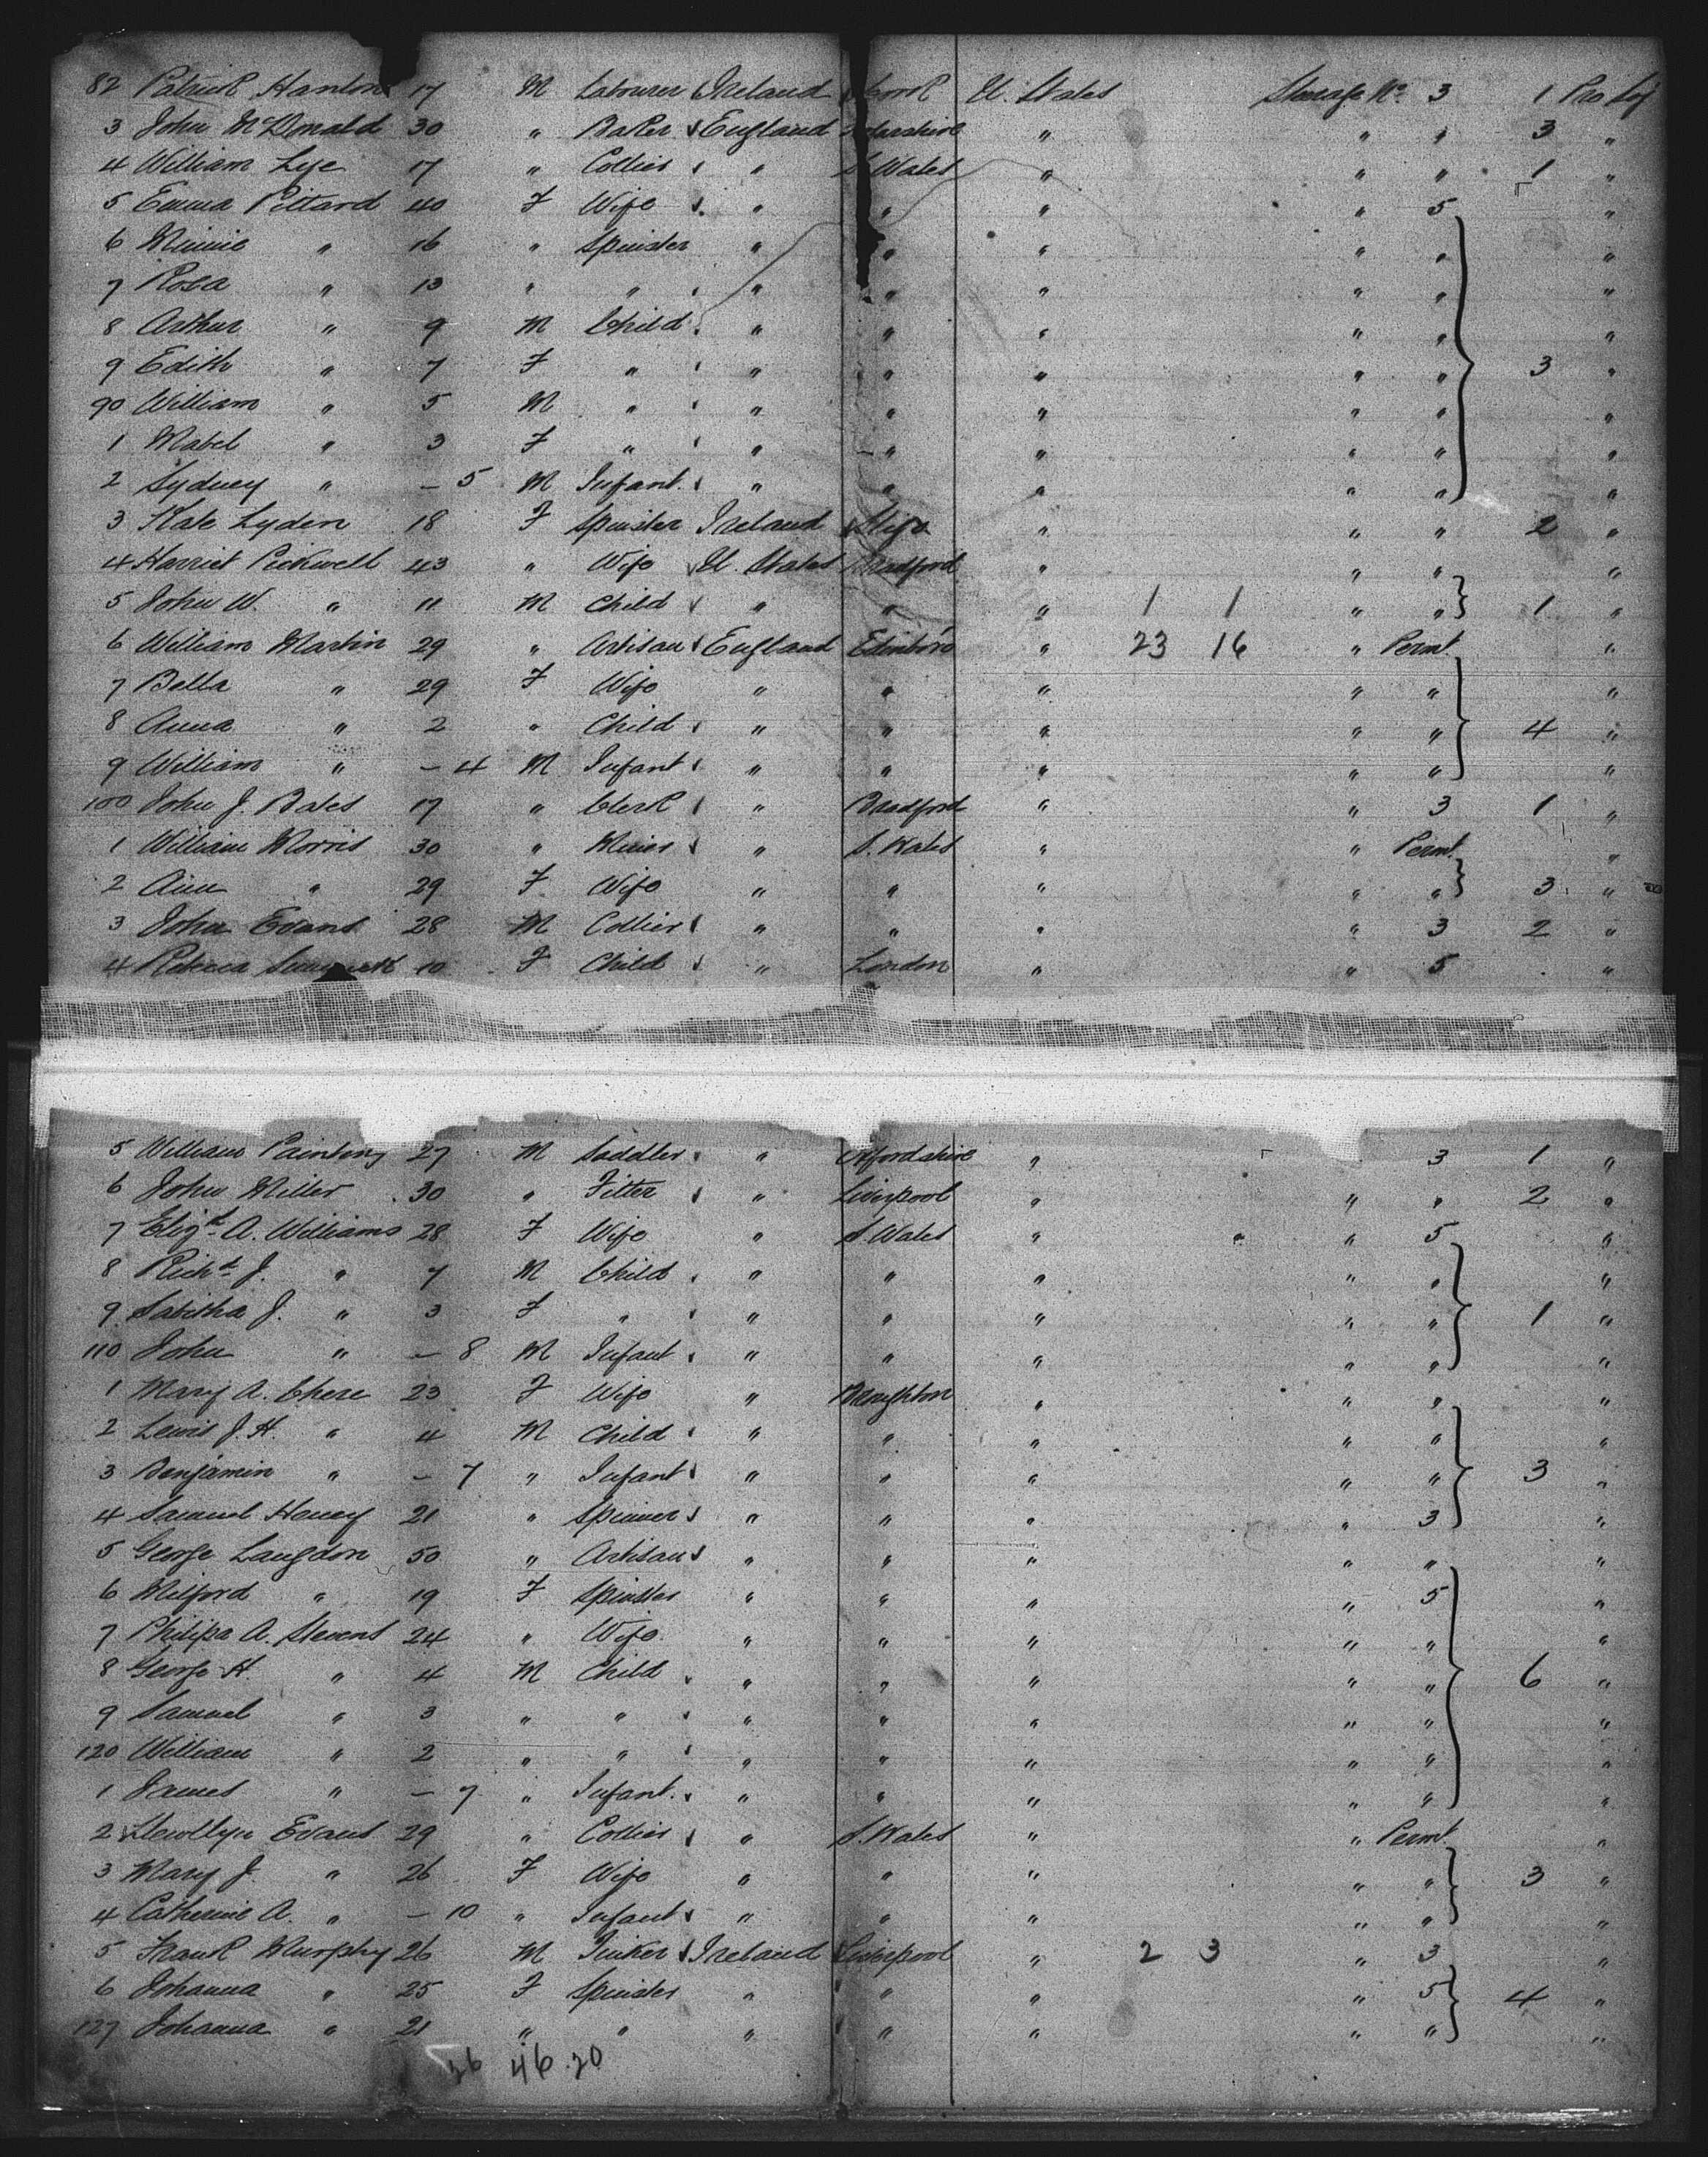 82 Patrick Hanlon 17 M Labourer Ireland U. States Steerage No. 3 1 Pro Soj
3 John McDonald 30 " Baker England " " " 3 "
4 William Lye 17 " Collier " S. Wales " " " 1 "
5 Emma Pittard 40 F Wife " " " " 5 "
6 Minnie " 16 " Spinster " " " " " "
7 Rosa " 13 " " " " " " " "
8 Arthur " 9 M Child " " " " " "
9 Edith " 7 F " " " " " " 3 "
90 William " 5 M " " " " " " "
1 Mabel " 3 F " " " " " " "
2 Sydney " – 5 M Infant " " " " " "
3 Kate Lyden 18 F Spinster Ireland Sligo " " " 2 "
4 Harriet Pickwell 43 " Wife U. States Bradford " " " "
5 John W. " 11 M Child " " " 1 1 " " 1 "
6 William Martin 29 " Artisan England Edinboro " 23 16 " Permt. "
7 Bella " 29 F Wife " " " " " "
8 Anna " 2 " Child " " " " " 4 "
9 William " – 4 M Infant " " " " " "
100 John J. Bates 17 " Clerk " Bradford " " 3 1 "
1 William Morris 30 " Miner " S. Wales " " Permt. "
2 Ann " 29 F Wife " " " " " 3 "
3 John Evans 28 M Collier " " " " 3 2 "
4 Rebecca 10 F Child " London " " 5 "
5 William Painting 27 M Saddler " Oxfordshire " " 3 1 "
6 John Miller 30 " Fitter " Liverpool " " " 2 "
7 Elizth A. Williams 28 F Wife " S. Wales " " 5 "
8 Richd J. " 7 M Child " " " " " "
9 Tabitha J. " 3 F " " " " " " 1 "
110 John " – 8 M Infant " " " " " "
1 Mary A. Chere 23 F Wife " " " " "
2 Lewis J. H. " 4 M Child " " " " " "
3 Benjamin " – 7 " Infant " " " " " 3 "
4 Samuel Haney 21 " Spinner " " " " 3 "
5 George Langdon 50 " Artisan " " " " " "
6 Milford " 19 F Spinster " " " " 5 "
7 Philipa A. Stevens 24 " Wife " " " " " "
8 George H. " 4 M Child " " " " " 6 "
9 Samuel " 3 " " " " " " " "
120 William " 2 " " " " " " " "
1 James " – 7 " Infant " " " " " "
2 Llewllyn Evans 29 " Collier " S. Wales " " Permt. "
3 Mary J. " 26 F Wife " " " " " 3 "
4 Catherine A. " – 10 " Infant " " " " " "
5 Frank Murphy 26 M Tinker Ireland Liverpool " 2 3 " 3 "
6 Johanna " 25 F Spinster " " " " 5 4 "
127 Johanna " 21 " " " " " " " "
46 20